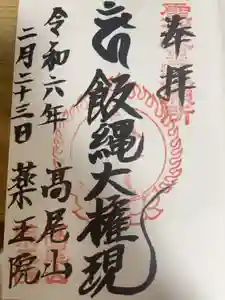 奉拝
飯縄大権現
高尾山 薬王院
令和六年
二月二十三日